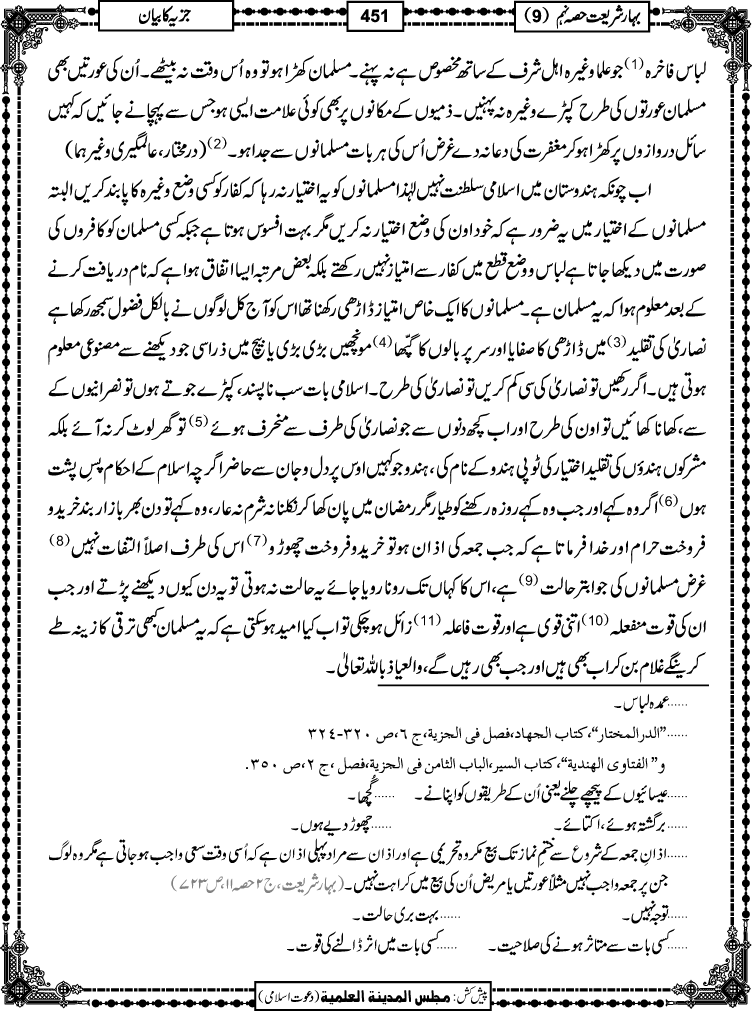 بہار شریعت حصہ نہم (9)
451
جزیہ کا بیان
لباس فاخرہ(1) جو علما وغیرہ اہل شرف کے ساتھ مخصوص ہے نہ پہنے۔ مسلمان کھڑا ہو تو وہ اُس وقت نہ بیٹھے۔ اُن کی عورتیں بھی
مسلمان عورتوں کی طرح کپڑے وغیرہ نہ پہنیں۔ ذمیوں کے مکانوں پر بھی کوئی علامت ایسی ہو جس سے پہچانے جائیں کہ کہیں
سائل دروازوں پر کھڑا ہو کر مغفرت کی دعا نہ دے غرض اُس کی ہر بات مسلمانوں سے جدا ہو۔(2) (درمختار، عالمگیری وغیرہما)
اب چونکہ ہندوستان میں اسلامی سلطنت نہیں لہٰذا مسلمانوں کو یہ اختیار نہ رہا کہ کفار کو کسی وضع وغیرہ کا پابند کریں البتہ
مسلمانوں کے اختیار میں یہ ضرور ہے کہ خود اون کی وضع اختیار نہ کریں مگر بہت افسوس ہوتا ہے جبکہ کسی مسلمان کو کافروں کی
صورت میں دیکھا جاتا ہے لباس و وضع قطع میں کفار سے امتیاز نہیں رکھتے بلکہ بعض مرتبہ ایسا اتفاق ہوا ہے کہ نام دریافت کرنے
کے بعد معلوم ہوا کہ یہ مسلمان ہے۔ مسلمانوں کا ایک خاص امتیاز ڈاڑھی رکھنا تھا اس کو آج کل لوگوں نے بالکل فضول سمجھ رکھا ہے
نصاریٰ کی تقلید(3) میں ڈاڑھی کا صفایا اور سر پر بالوں کا گپھا(4) مونچھیں بڑی بڑی یا بیچ میں ذرا سی جو دیکھنے سے مصنوعی معلوم
ہوتی ہیں۔ اگر رکھیں تو نصاریٰ کی سی کم کریں تو نصاریٰ کی طرح۔ اسلامی بات سب ناپسند، کپڑے جوتے ہوں تو نصرانیوں کے
سے، کھانا کھائیں تو اون کی طرح اور اب کچھ دنوں سے جو نصاریٰ کی طرف سے منحرف ہوئے(5) تو گھر لوٹ کر نہ آئے بلکہ
مشرکوں ہندوؤں کی تقلید اختیار کی ٹوپی ہندو کے نام کی، ہندو جو کہیں اوس پر دل و جان سے حاضر اگرچہ اسلام کے احکام پسِ پشت
ہوں(6) اگر وہ کہے اور جب وہ کہے روزہ رکھنے کو طیار مگر رمضان میں پان کھا کر نکلنا نہ شرم نہ عار، وہ کہے تو دن بھر بازار بند خرید و
فروخت حرام اور خدا فرماتا ہے کہ جب جمعہ کی اذان ہو تو خرید و فروخت چھوڑ و(7) اس کی طرف اصلاً التفات نہیں(8)
غرض مسلمانوں کی جو ابتر حالت(9) ہے، اس کا کہاں تک رونا رویا جائے یہ حالت نہ ہوتی تو یہ دن کیوں دیکھنے پڑتے اور جب
ان کی قوت منفعلہ(10) اتنی قوی ہے اور قوت فاعلہ(11) زائل ہو چکی تو اب کیا امید ہو سکتی ہے کہ یہ مسلمان کبھی ترقی کا زینہ طے
کرینگے غلام بن کر اب بھی ہیں اور جب بھی رہیں گے، والعیاذ باللہ تعالیٰ۔
......عمدہ لباس۔
......"الدرالمختار"، کتاب الجهاد، فصل فی الجزیة، ج ٦، ص ٣٢٠-٣٢٤
و" الفتاوی الهندیة"، کتاب السیر، الباب الثامن فی الجزیة، فصل، ج ٢، ص ٣٥٠.
......عیسائیوں کے پیچھے چلنے یعنی اُن کے طریقوں کو اپنانے۔ ......گُچھا۔
......برگشتہ ہوئے، اکتائے۔ ......چھوڑ دیے ہوں۔
......اذانِ جمعہ کے شروع سے ختمِ نماز تک بیع مکروہ تحریمی ہے اور اذان سے مراد پہلی اذان ہے کہ اُسی وقت سعی واجب ہو جاتی ہے مگر وہ لوگ
جن پر جمعہ واجب نہیں مثلاً عورتیں یا مریض اُن کی بیع میں کراہت نہیں۔ (بہار شریعت، ج۲ حصہ ۱۱، ص ۷۲۳)
......توجہ نہیں۔ ......بہت بری حالت۔
......کسی بات سے متاثر ہونے کی صلاحیت۔ ......کسی بات میں اثر ڈالنے کی قوت۔
پیش کش: مجلس المدینة العلمیة (دعوت اسلامی)